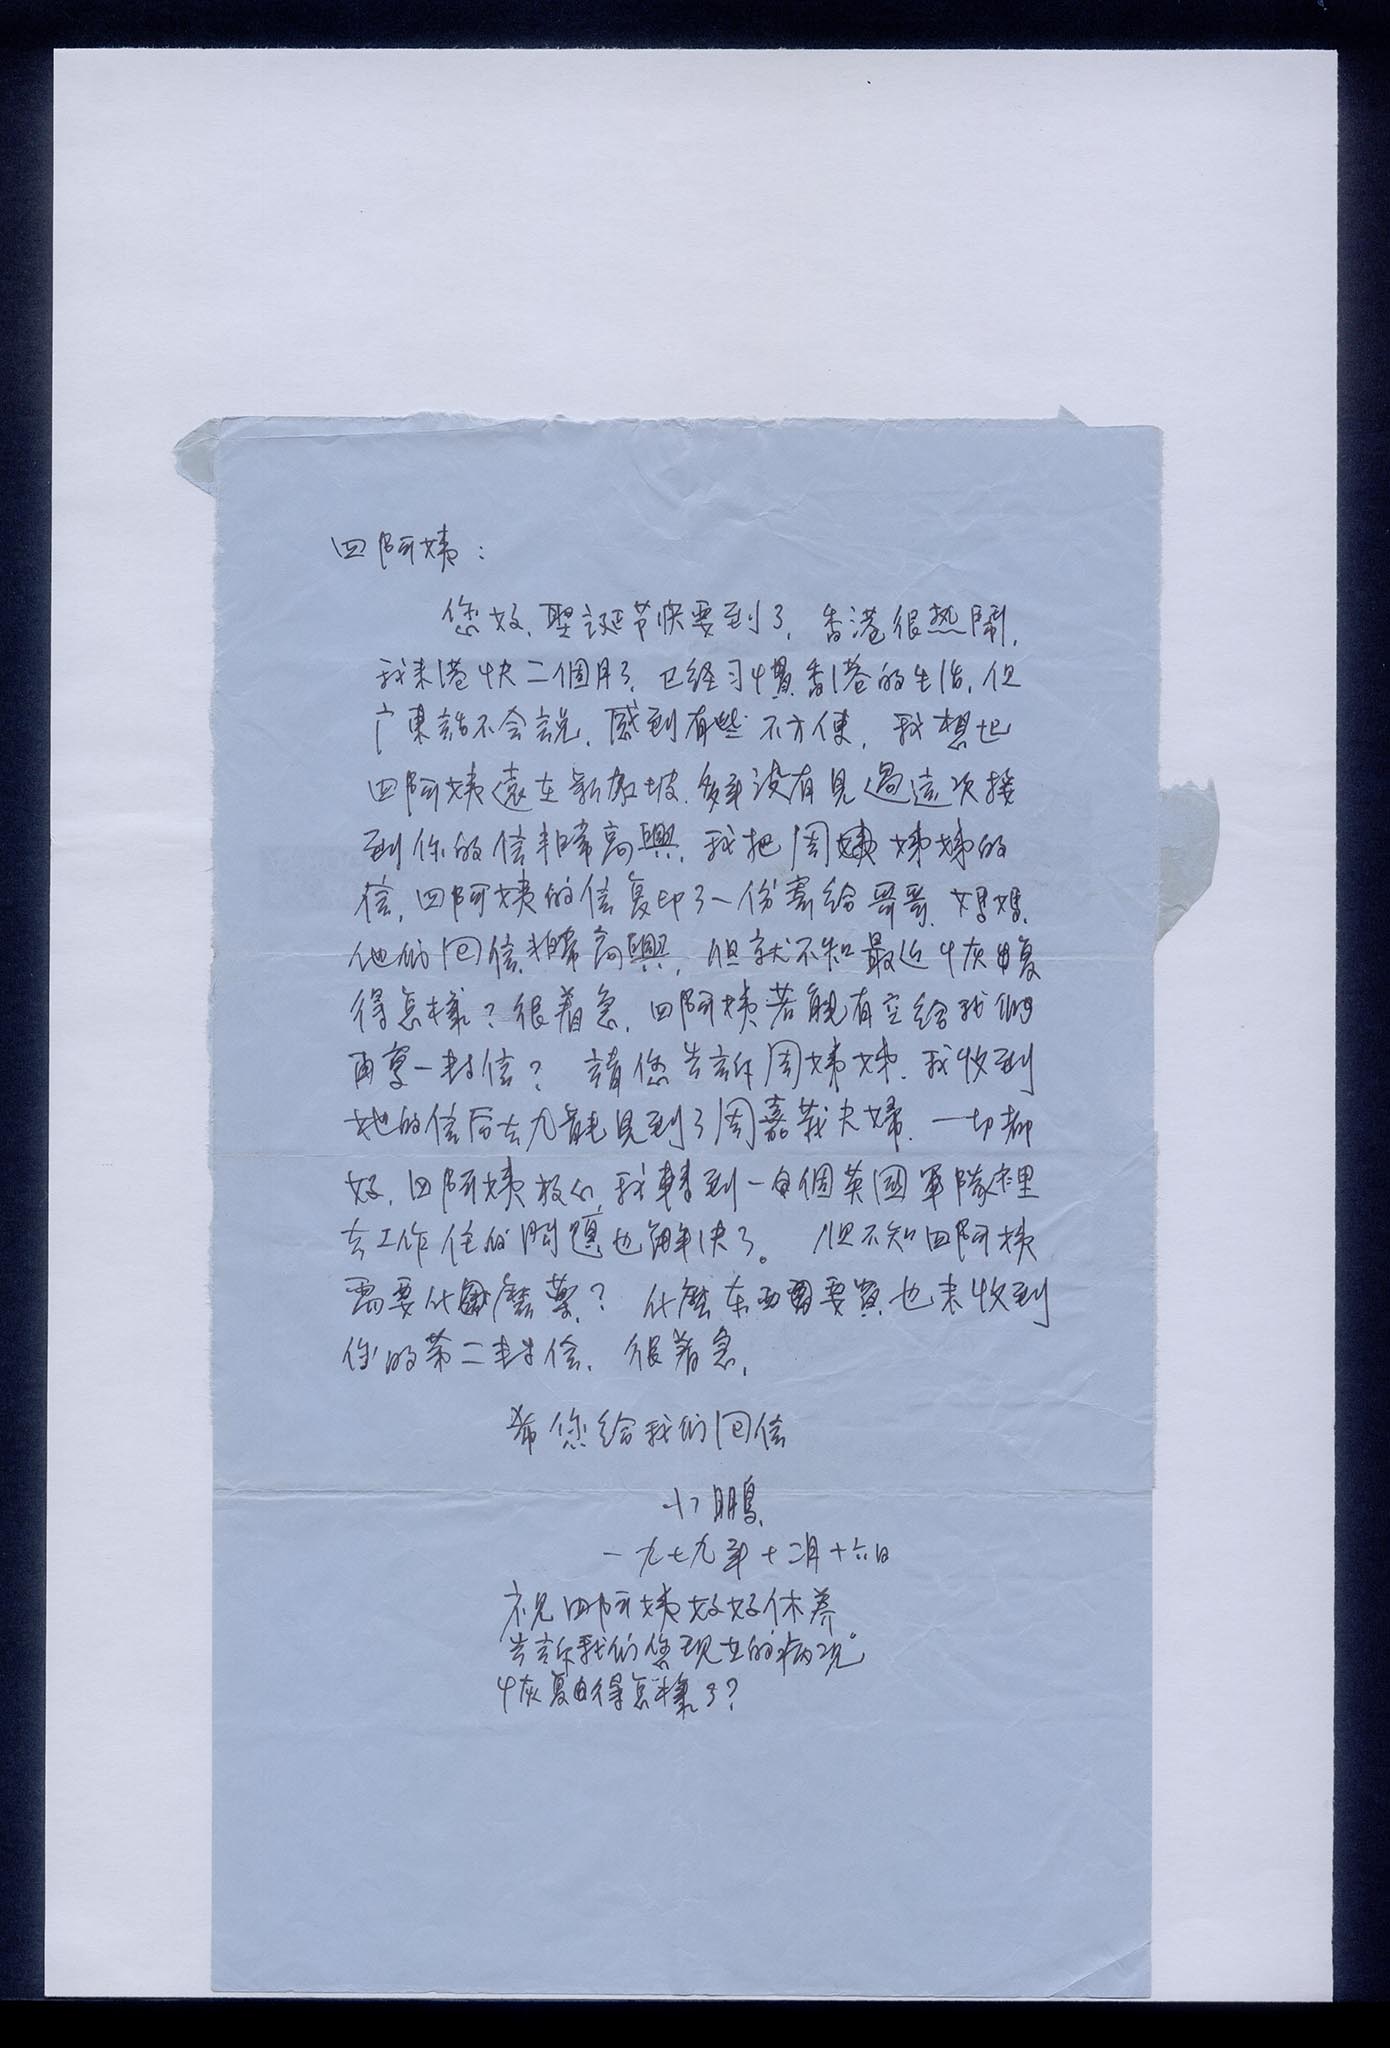 四阿姨：
您好、聖誕节快要到了，香港很热鬧，
我来港快二個月了，已经习慣香港的生活，但
广東話不会說，感到有些不方便，我想也
四阿姨遠在新加坡，多年没有見過這次接
到你的信非常高興，我把周姨姊姊的
信，四阿姨的信复印了一份寄給哥哥、媽媽，
他们回信非常高興，但就不知最近恢复
得怎樣？很着急，四阿姨若能有空給我們
再寫一封信？ 請您告訴周姊姊，我收到
她的信后去九龍見到了周嘉 夫婦，一切都
好，四阿姨放心，我轉到一個英國軍隊裡
去工作住的問題也解决了。 但不知四阿姨
需要什麽藥？ 什麽东西需要買，也未收到
你的第二封信，很着急，
希您給我们回信
小鵬
一九七九年十二月十六日
祝四阿姨好好休养
告訴我们您现在的病况。
恢复得怎樣了？